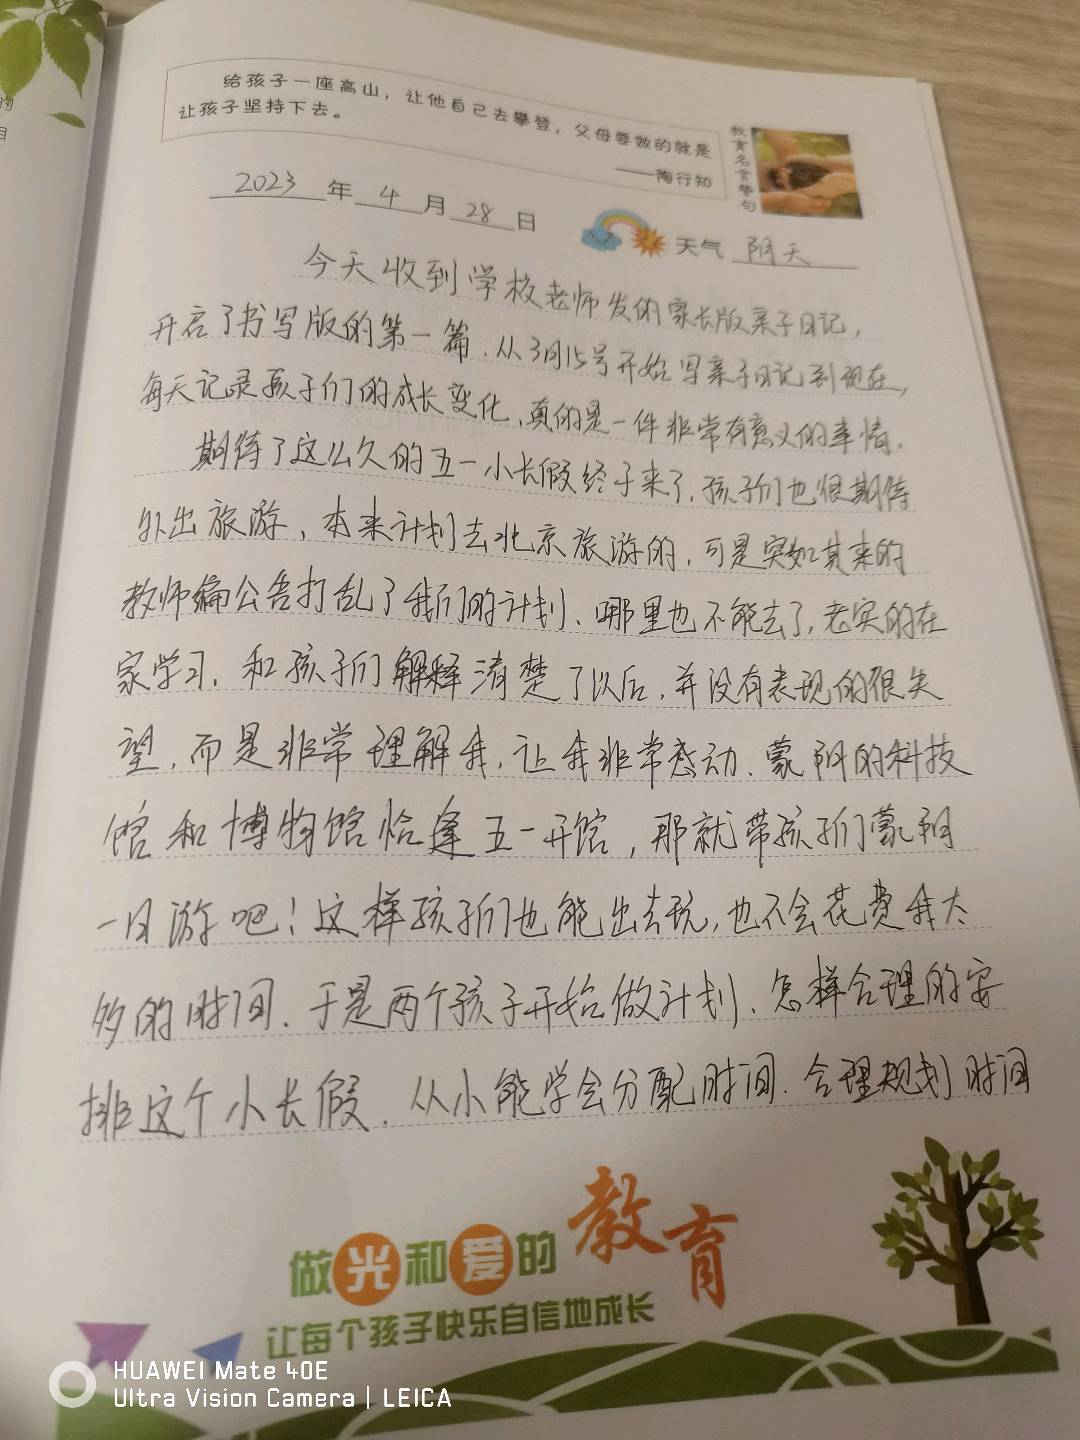 的
目
给孩子一座高山，让他自己去攀登，父母要做的就是
让孩子坚持下去。
——陶行知
教育名言警句
2023年4月28日
天气 阴天
今天收到学校老师发的家长版亲子日记，
开启了书写版的第一篇.从3月15号开始写亲子日记到现在，
每天记录孩子们的成长变化、真的是一件非常有意义的事情.
期待了这么久的五一小长假终于来了.孩子们也很期待
外出旅游、本来计划去北京旅游的，可是突如其来的
教师编公告打乱了我们的计划、哪里也不能去了，老实的在
家学习.和孩子们解释清楚了以后，并没有表现的很失
望，而是非常理解我，让我非常感动.蒙阴的科技
馆和博物馆恰逢五一开馆，那就带孩子们蒙阴
一日游吧！这样孩子们也能出去玩，也不会花费我太
多的时间.于是两个孩子开始做计划、怎样合理的安
排这个小长假.从小能学会分配时间.合理规划时间
做光和爱的教育
让每个孩子快乐自信地成长
HUAWEI Mate 40E
Ultra Vision Camera | LEICA